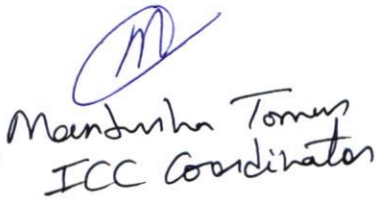 Manjusha Tomer
ICC Coordinator